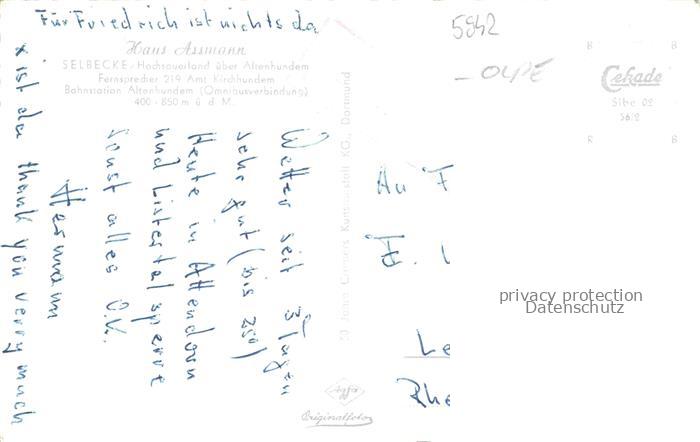 Für Friedrich ist nichts da
x ist da thank you verry much
Hans Assmann
SELBECKE - Hochsauerland über Altenhundem
Fernsprecher 219 Amt Kirchhundem
Bahnstation Altenhundem (Omnibusverbindung)
400 - 850 m ü. d. M.
Wetter seit 3 Tagen
sehr gut (bis 25°)
Heute in Attendorn
und Listertalsperre
sonst alles O.K.
Hermann
50 Jahre Cramers Kunstanstalt KG., Dortmund
Agfa
Originalfoto
5942
- OLPE
R
B
Cekade
Slbe 02
R
B
An F
F.
Le
Rhe
privacy protection
Datenschutz